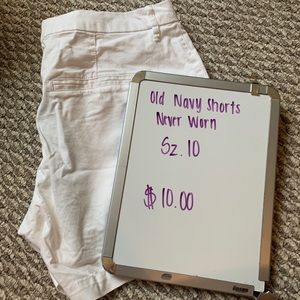 Old Navy Shorts
Never Worn
Sz. 10
$10.00